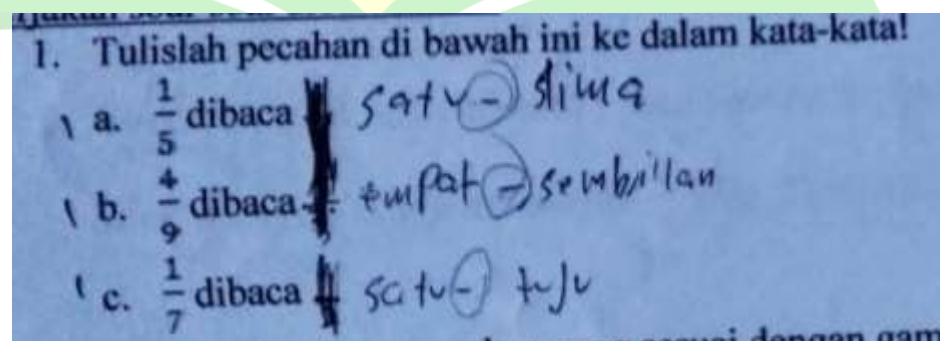 1. Tulislah pecahan di bawah ini ke dalam kata-kata!
a. 1/5 dibaca satu - lima
b. 4/9 dibaca empat - sembillan
c. 1/7 dibaca satu - tuju